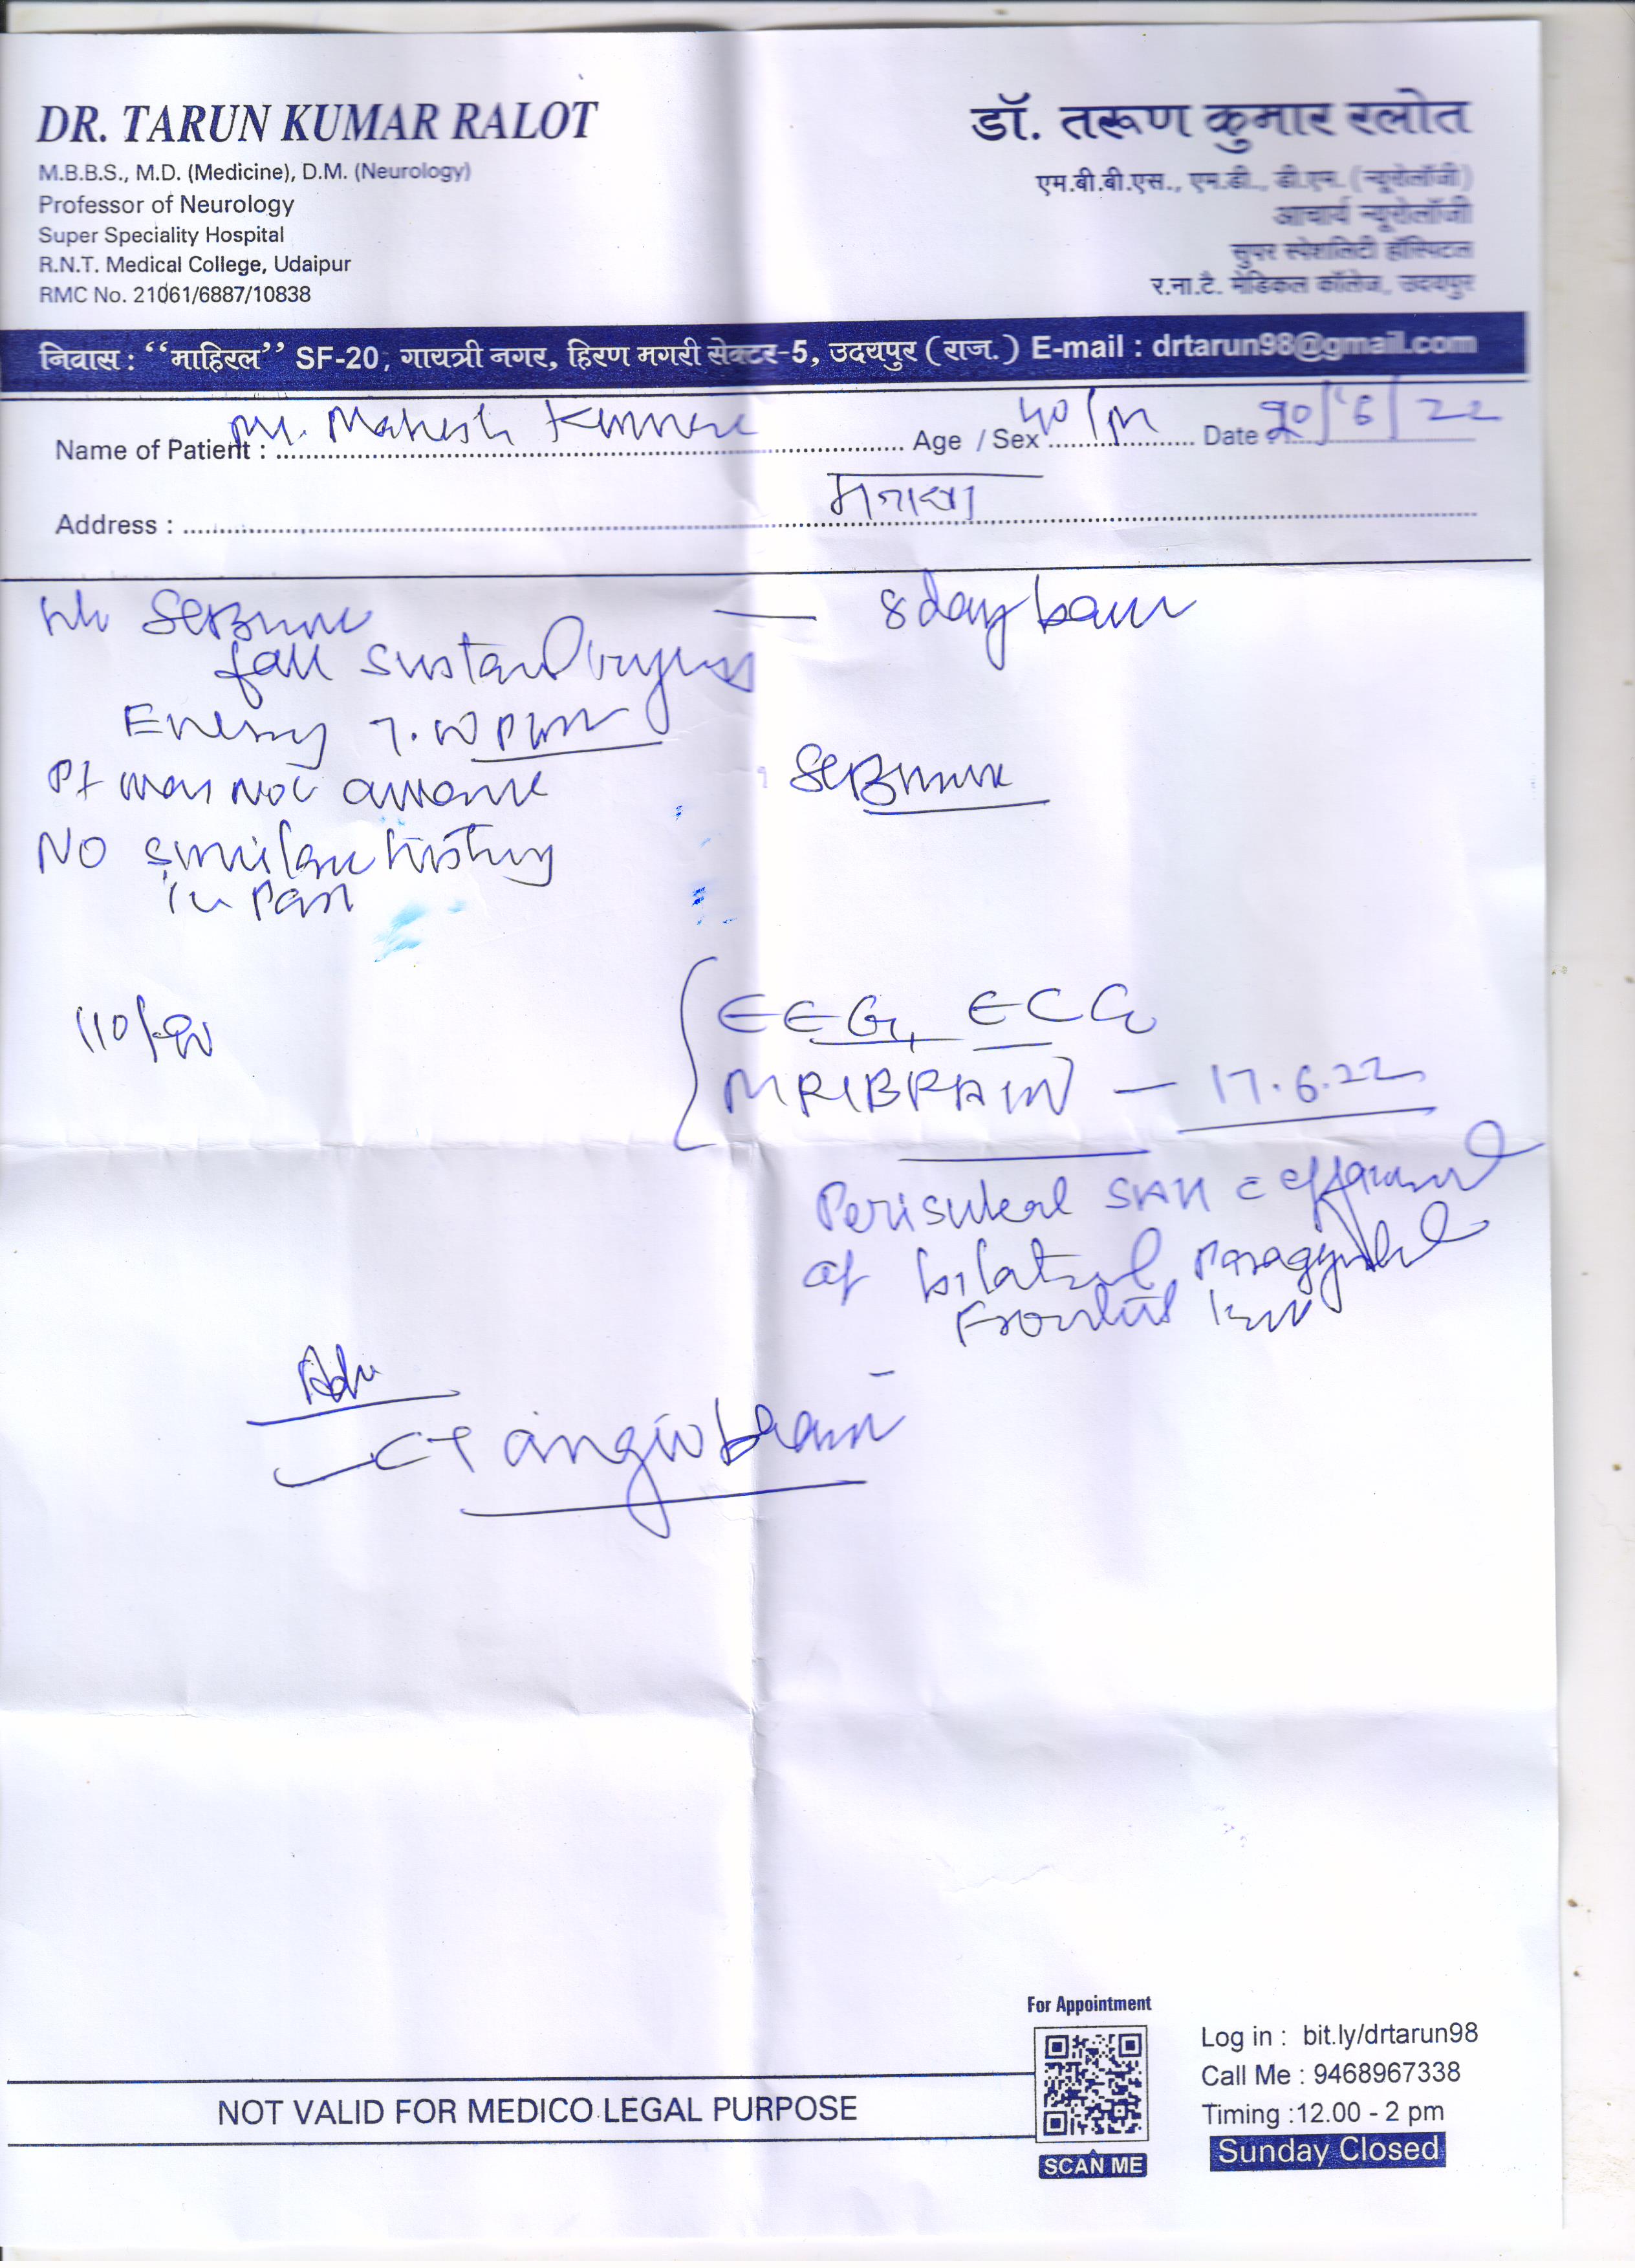 DR. TARUN KUMAR RALOT
M.B.B.S., M.D. (Medicine), D.M. (Neurology)
Professor of Neurology
Super Speciality Hospital
R.N.T. Medical College, Udaipur
RMC No. 21061/6887/10838
डॉ. तरूण कुमार रलोत
एम.बी.बी.एस., एम.डी., डी.एम. (न्यूरोलॉजी)
आचार्य न्यूरोलॉजी
सुपर स्पेशलिटी हॉस्पिटल
र.ना.टै. मेडिकल कॉलेज, उदयपुर
निवास : “माहिरल” SF-20, गायत्री नगर, हिरण मगरी सेक्टर-5, उदयपुर (राज.) E-mail : drtarun98@gmail.com
Name of Patient : Mr. Mahesh Kumar Age / Sex 40/M Date 20/6/22
Address :
Seizure — 8 day back
fall sustained
Evening 7.00 PM
Pt was not aware
Seizure
No similar history
in past
110/90
EEG, ECG
MRI BRAIN — 17.6.22
Perisulcal SAH c effacement
of bilateral
Adv
CT angio brain
For Appointment
SCAN ME
Log in : bit.ly/drtarun98
Call Me : 9468967338
Timing :12.00 - 2 pm
Sunday Closed
NOT VALID FOR MEDICO LEGAL PURPOSE